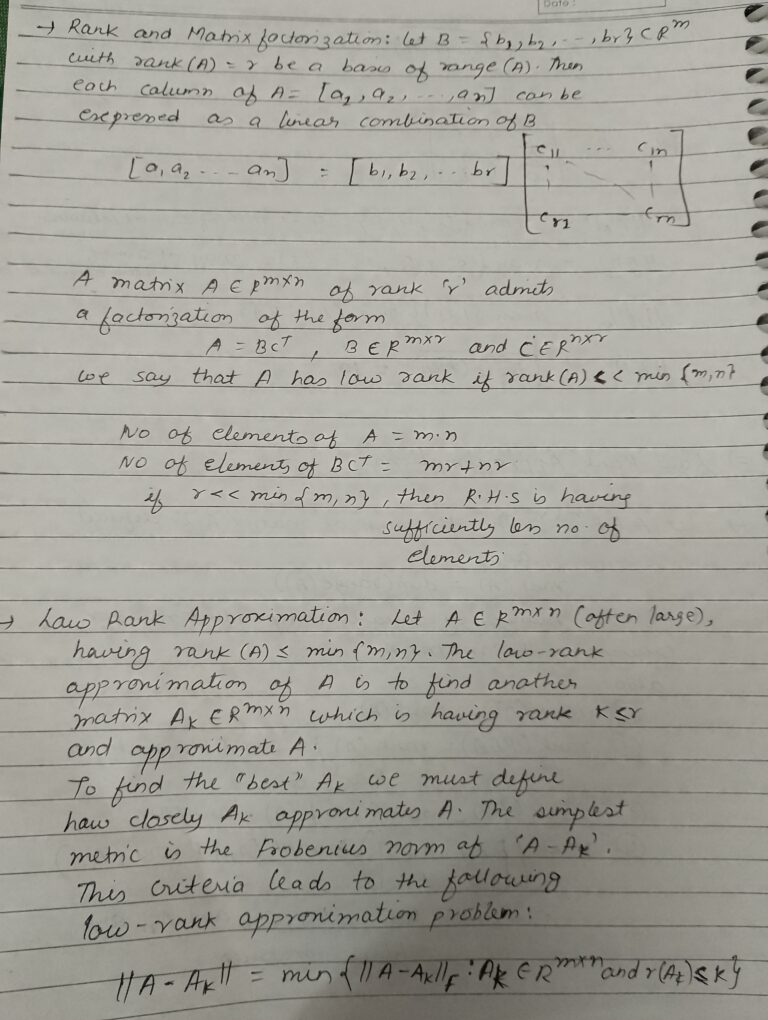 Date:
→ Rank and Matrix factorization: let B = {b1, b2, ---, br} ⊂ R^m
with rank(A) = r be a basis of range (A). Then
each column of A = [a1, a2, ..., an] can be
expressed as a linear combination of B
[a1 a2 --- an] = [b1, b2, -- br] [c11 ... c1n
cr1 - - crn]
A matrix A ∈ R^m×n of rank 'r' admits
a factorization of the form
A = BC^T , B ∈ R^m×r and C ∈ R^n×r
we say that A has low rank if rank(A) << min {m,n}
No of elements of A = m·n
NO of elements of BC^T = mr+nr
if r << min {m, n}, then R.H.S is having
sufficiently less no. of
elements.
→ Low Rank Approximation: Let A ∈ R^m×n (often large),
having rank (A) ≤ min {m,n}. The low-rank
approximation of A is to find another
matrix Ak ∈ R^m×n which is having rank K ≤ r
and approximate A.
To find the "best" Ak we must define
how closely Ak approximates A. The simplest
metric is the Frobenius norm of 'A - Ak'.
This criteria leads to the following
low-rank approximation problem:
||A - Ak|| = min {||A - Ak||F : Ak ∈ R^m×n and r(Ak) ≤ K}